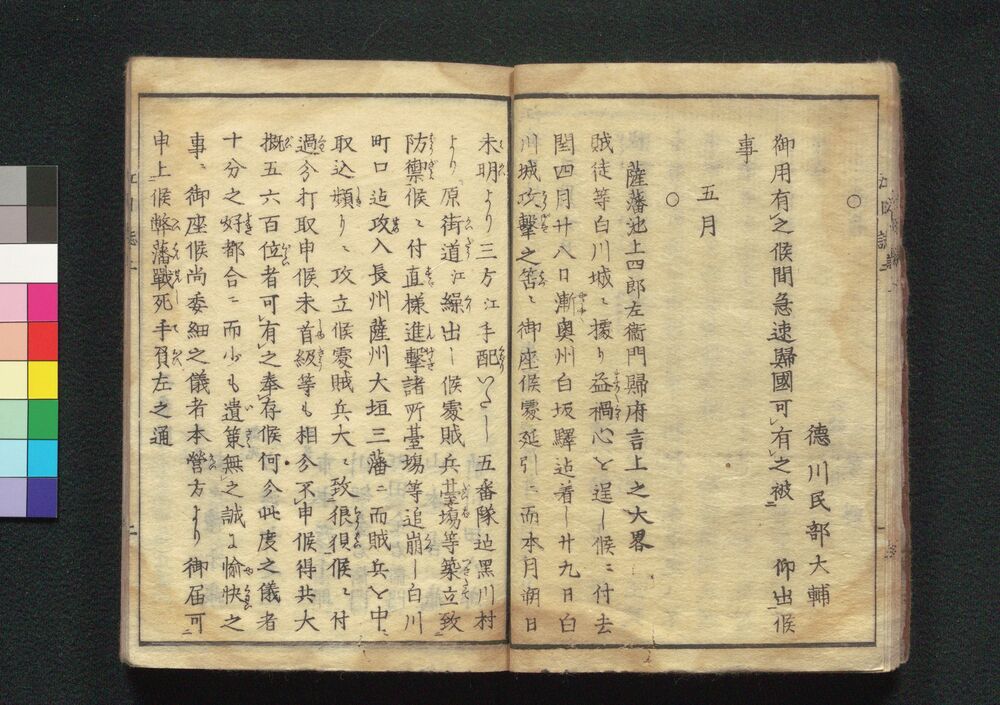 ○
德川民部大輔
御用有之候間急速歸國可有之被 仰出候
事
五月
○
薩藩池上四郎左衛門歸府言上之大畧
賊徒等白川城ニ據り益禍心を逞し候ニ付去
閏四月廿八日漸奥州白坂驛迠着し廿九日白
川城攻擊之筈ニ御座候處延引ニ而本月朔日
未明より三方江手配いたし五番隊迠黑川村
より原街道江繰出し候處賊兵䑓塲等築立致
防禦候ニ付直樣進擊諸所䑓塲等追崩し白川
町口迠攻入長州薩州大垣三藩ニ而賊兵を中ニ
取込頻りニ攻立候處賊兵大ニ致狼狽候ニ付
過分打取申候未首級等も相分不申候得共大
概五六百位者可有之奉存候何分此度之儀者
十分之好都合ニ而少も遺策無之誠に愉快之
事ニ御座候尚委細之儀者本營方より御届可
申上候弊藩戰死手負左之通